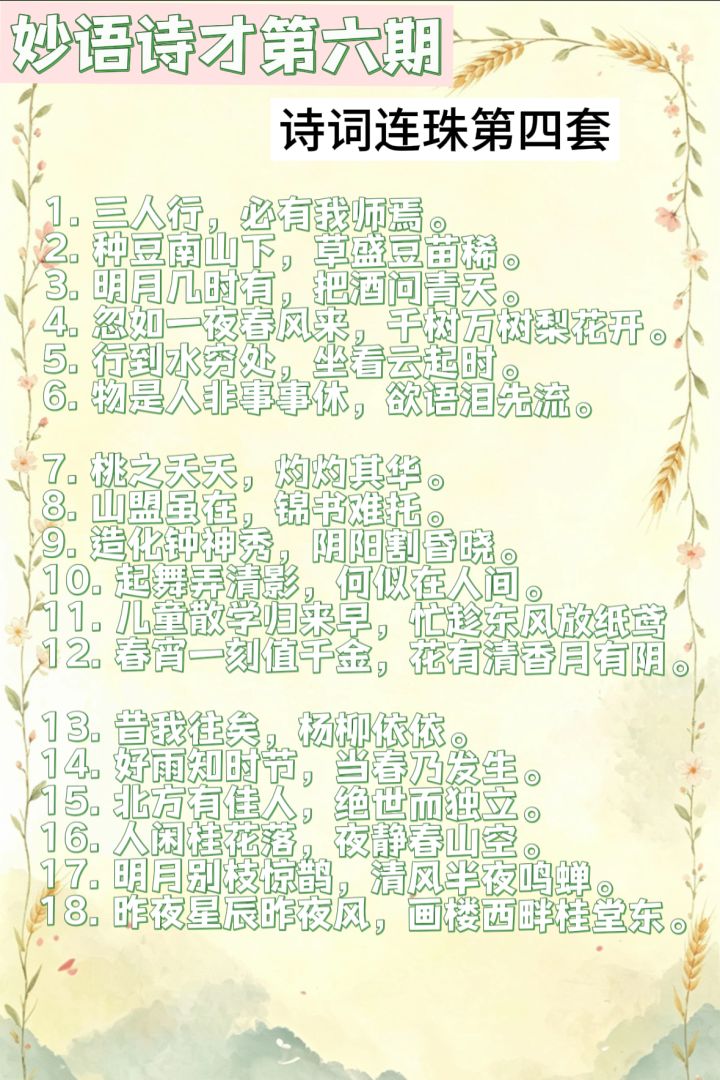 妙语诗才第六期
诗词连珠第四套
1. 三人行，必有我师焉。
2. 种豆南山下，草盛豆苗稀。
3. 明月几时有，把酒问青天。
4. 忽如一夜春风来，千树万树梨花开。
5. 行到水穷处，坐看云起时。
6. 物是人非事事休，欲语泪先流。
7. 桃之夭夭，灼灼其华。
8. 山盟虽在，锦书难托。
9. 造化钟神秀，阴阳割昏晓。
10. 起舞弄清影，何似在人间。
11. 儿童散学归来早，忙趁东风放纸鸢
12. 春宵一刻值千金，花有清香月有阴。
13. 昔我往矣，杨柳依依。
14. 好雨知时节，当春乃发生。
15. 北方有佳人，绝世而独立。
16. 人闲桂花落，夜静春山空。
17. 明月别枝惊鹊，清风半夜鸣蝉。
18. 昨夜星辰昨夜风，画楼西畔桂堂东。